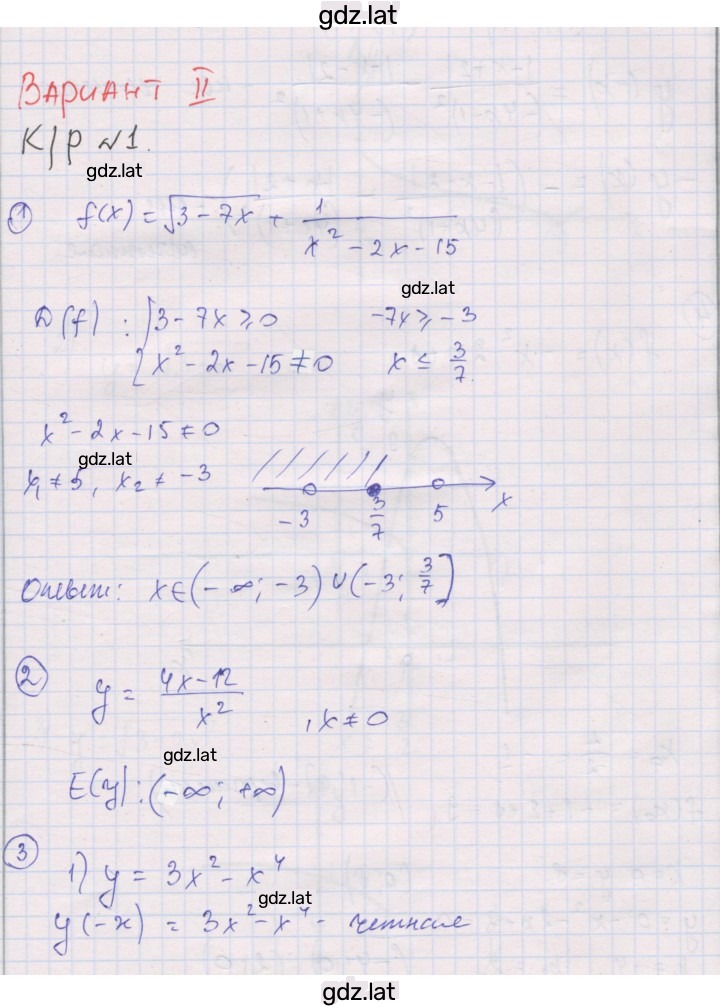 gdz.lat
ВАРИАНТ II
К/р №1.
gdz.lat
① f(x) = √3 - 7x + 1/(x² - 2x - 15)
gdz.lat
D(f) : { 3 - 7x ⩾ 0 -7x ⩾ -3
x² - 2x - 15 ≠ 0 x ≤ 3/7.
x² - 2x - 15 ≠ 0
gdz.lat
x₁ ≠ 5, x₂ ≠ -3
-3 3/7 5 x
Ответ: x ∈ (-∞; -3) ∪ (-3; 3/7]
② y = (4x - 12)/x² , x ≠ 0
gdz.lat
E(y): (-∞; +∞)
③ 1) y = 3x² - x⁴
gdz.lat
y(-x) = 3x² - x⁴ - четная
gdz.lat